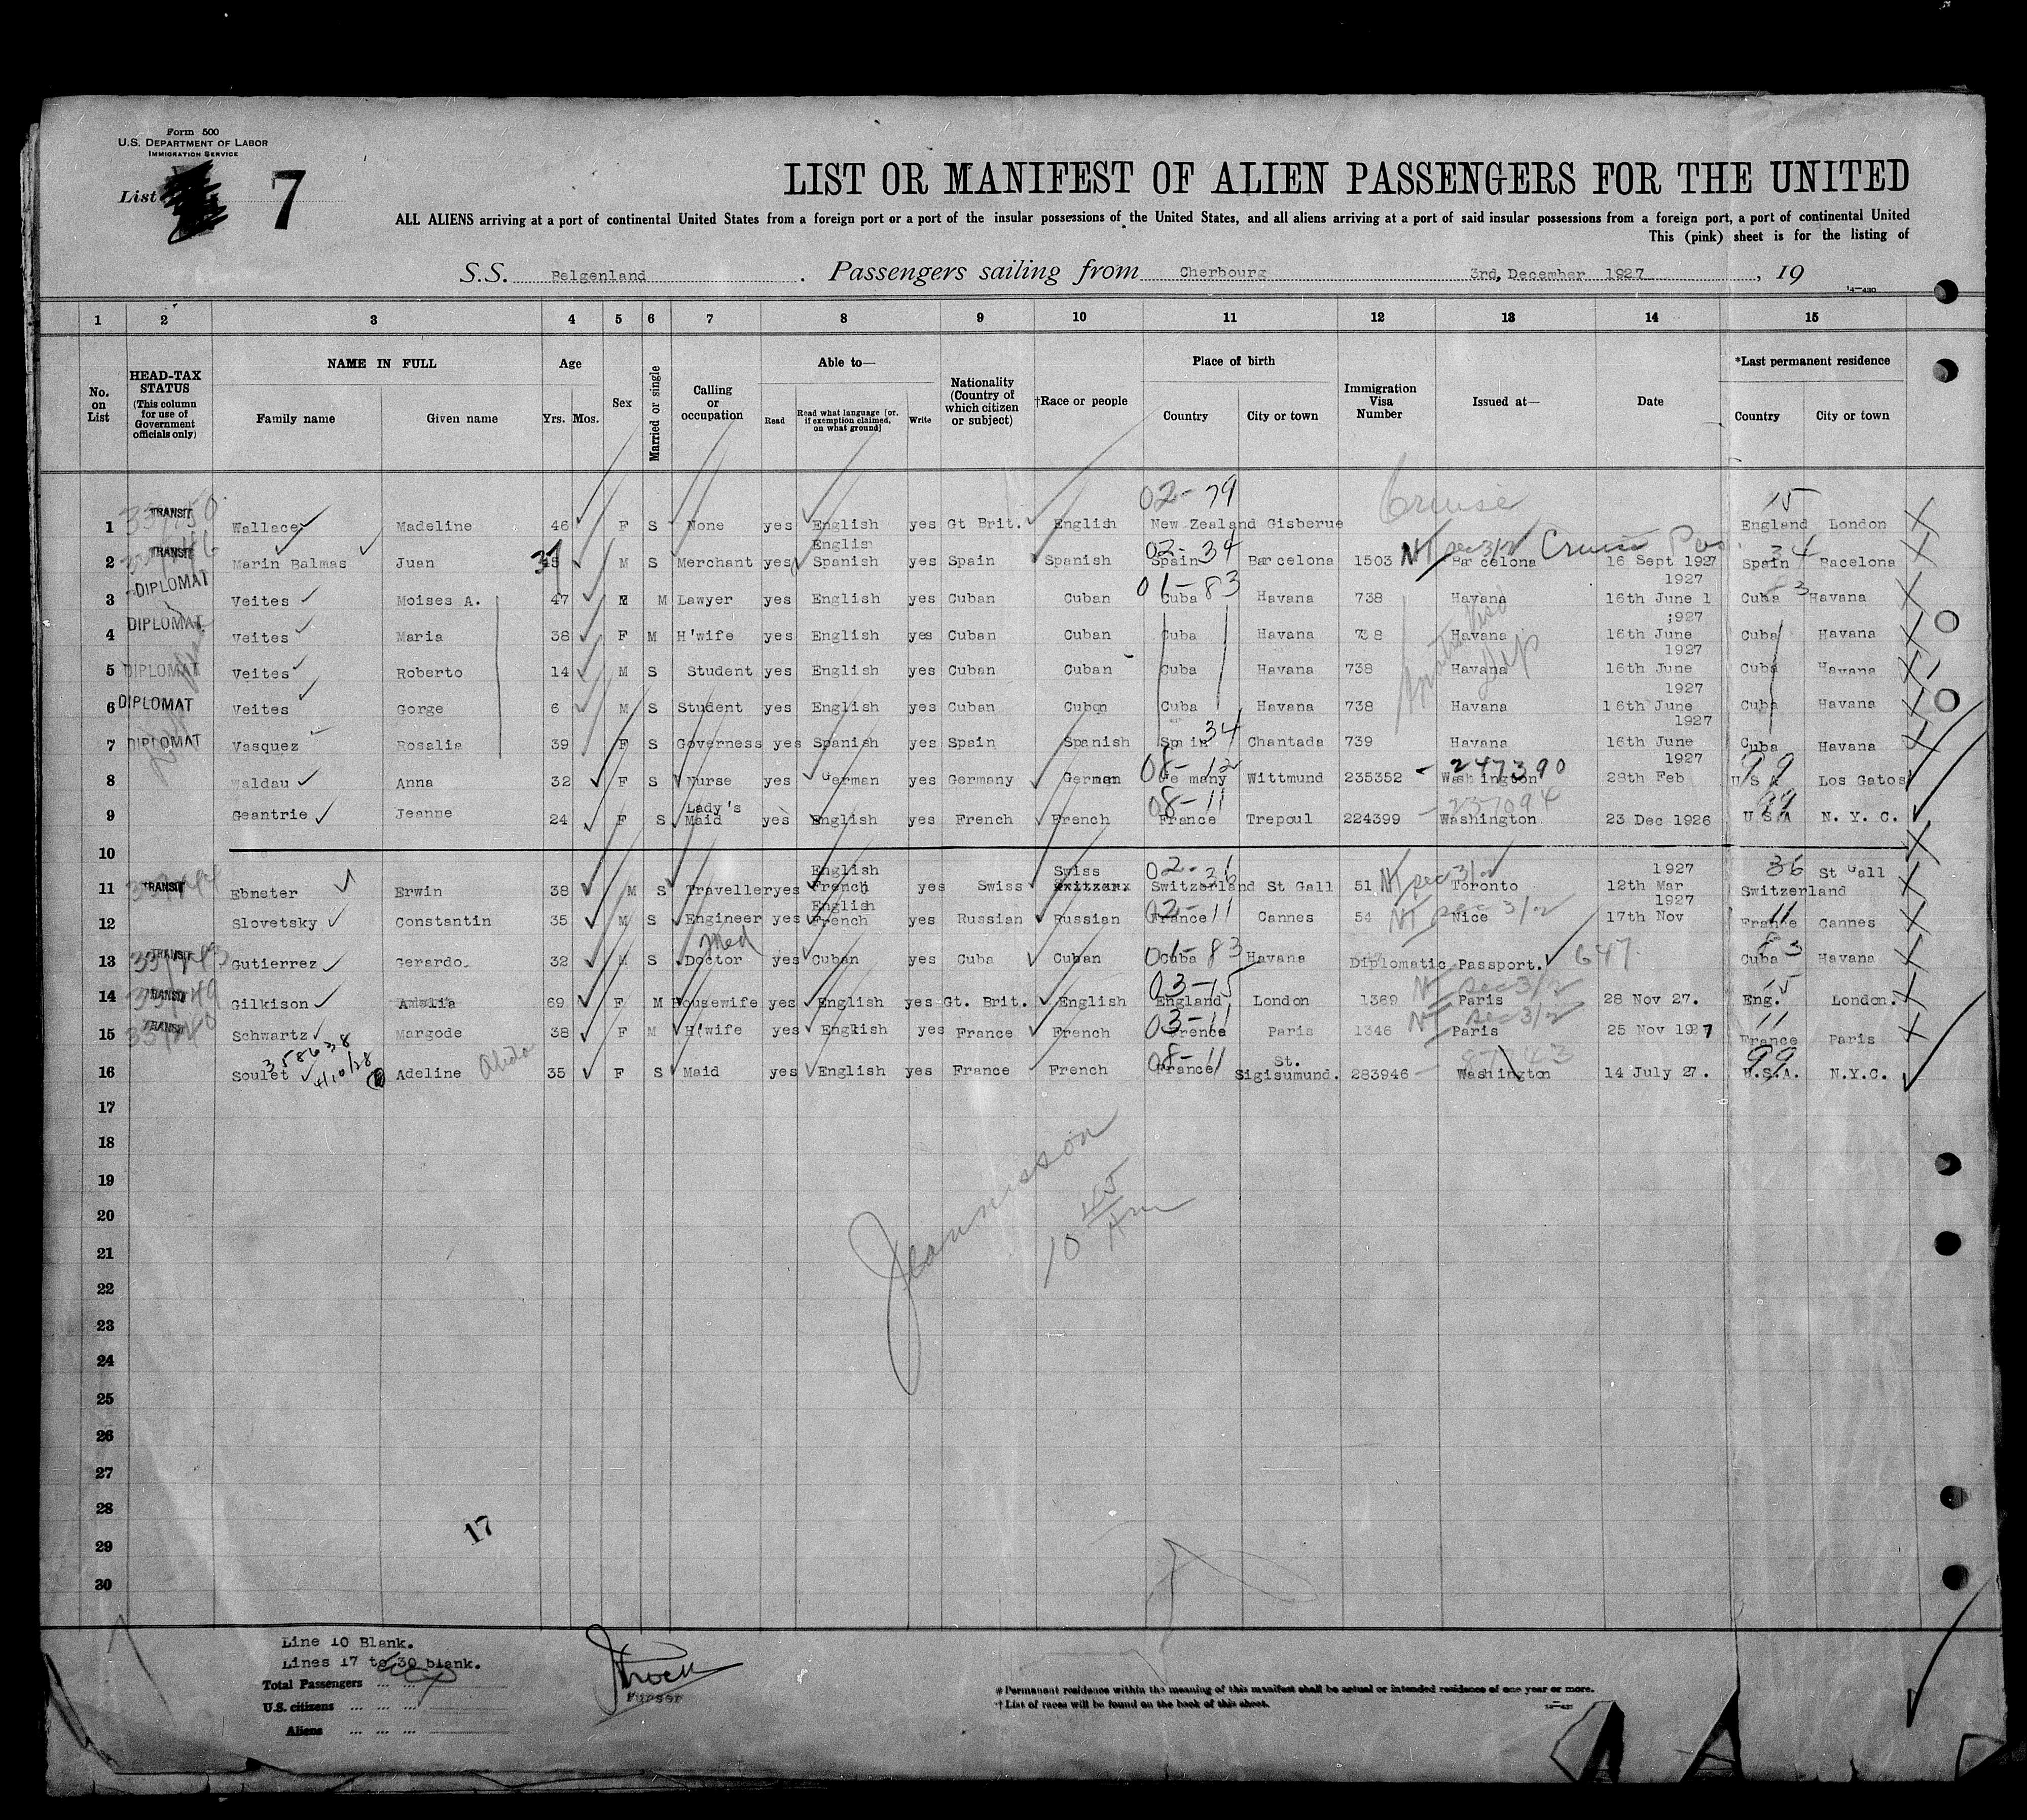 Form 500
U.S. DEPARTMENT OF LABOR
IMMIGRATION SERVICE
List 7
LIST OR MANIFEST OF ALIEN PASSENGERS FOR THE UNITED
ALL ALIENS arriving at a port of continental United States from a foreign port or a port of the insular possessions of the United States, and all aliens arriving at a port of said insular possessions from a foreign port, a port of continental United
This (pink) sheet is for the listing of
S.S. Belgenland. Passengers sailing from Cherbourg 3rd, December 1927, 19
14-430
1 2 3 4 5 6 7 8 9 10 11 12 13 14 15
No. on List
HEAD-TAX STATUS (This column for use of Government officials only)
NAME IN FULL Family name Given name
Age Yrs. Mos.
Sex
Married or single
Calling or occupation
Able to— Read Read what language [or, if exemption claimed, on what ground] Write
Nationality (Country of which citizen or subject)
†Race or people
Place of birth Country City or town
Immigration Visa Number
Issued at—
Date
*Last permanent residence Country City or town
02-79 Cruise 15
1 TRANSIT Wallace Madeline 46 F S None yes English yes Gt Brit. English New Zealand Gisberue England London
English 02-34 NT sec 3/2 Cruise 34
2 TRANSIT Marin Balmas Juan 45 37 M S Merchant yes Spanish yes Spain Spanish Spain Barcelona 1503 Barcelona 16 Sept 1927 Spain Bacelona
01-83 1927 83
3 DIPLOMAT Veites Moises A. 47 M M Lawyer yes English yes Cuban Cuban Cuba Havana 738 Havana 16th June 1 Cuba Havana
;927
4 DIPLOMAT Veites Maria 38 F M H'wife yes English yes Cuban Cuban Cuba Havana 738 Havana 16th June Cuba Havana
1927
5 DIPLOMAT Veites Roberto 14 M S Student yes English yes Cuban Cuban Cuba Havana 738 Havana 16th June Cuba Havana
1927
6 DIPLOMAT Veites Gorge 6 M S Student yes English yes Cuban Cuban Cuba Havana 738 Havana 16th June Cuba Havana
34 1927
7 DIPLOMAT Vasquez Rosalia 39 F S Governess yes Spanish yes Spain Spanish Spain Chantada 739 Havana 16th June Cuba Havana
08-12 247390 1927 99
8 Waldau Anna 32 F S Nurse yes German yes Germany German Germany Wittmund 235352 Washington 28th Feb U S A Los Gatos
Lady's 08-11 237094 99
9 Geantrie Jeanne 24 F S Maid yes English yes French French France Trepoul 224399 Washington 23 Dec 1926 U S A N. Y. C.
10
English Swiss 02-36 NT sec 3/2 1927 36 St Gall
11 TRANSIT Ebneter Erwin 38 M S Traveller yes French yes Swiss Switzerland St Gall 51 Toronto 12th Mar Switzerland
English 02-11 NT sec 3/2 1927 11
12 Slovetsky Constantin 35 M S Engineer yes French yes Russian Russian France Cannes 54 Nice 17th Nov France Cannes
Med 01-83 647 83
13 TRANSIT Gutierrez Gerardo. 32 M S Doctor yes Cuban yes Cuba Cuban Cuba Havana Diplomatic Passport. Cuba Havana
03-15 NT sec 3/2 15
14 TRANSIT Gilkison Amalia 69 F M Housewife yes English yes Gt. Brit. English England London 1369 Paris 28 Nov 27. Eng. London.
03-11 NT sec 3/2 11
15 TRANSIT Schwartz Margode 38 F M H'wife yes English yes France French France Paris 1346 Paris 25 Nov 1927 France Paris
358638 4/10/28 08-11 St. 87743 99
16 Soulet Adeline 35 F S Maid yes English yes France French France Sigisumund. 283946 Washington 14 July 27. U.S.A. N.Y.C.
17
18
19
20
21
22
23
24
25
26
27
28
29
30
10 45 Am
17
Line 10 Blank.
Lines 17 to 30 blank.
Total Passengers
U.S. citizens
Aliens
Purser
* Permanent residence within the meaning of this manifest shall be actual or intended residence of one year or more.
† List of races will be found on the back of this sheet.